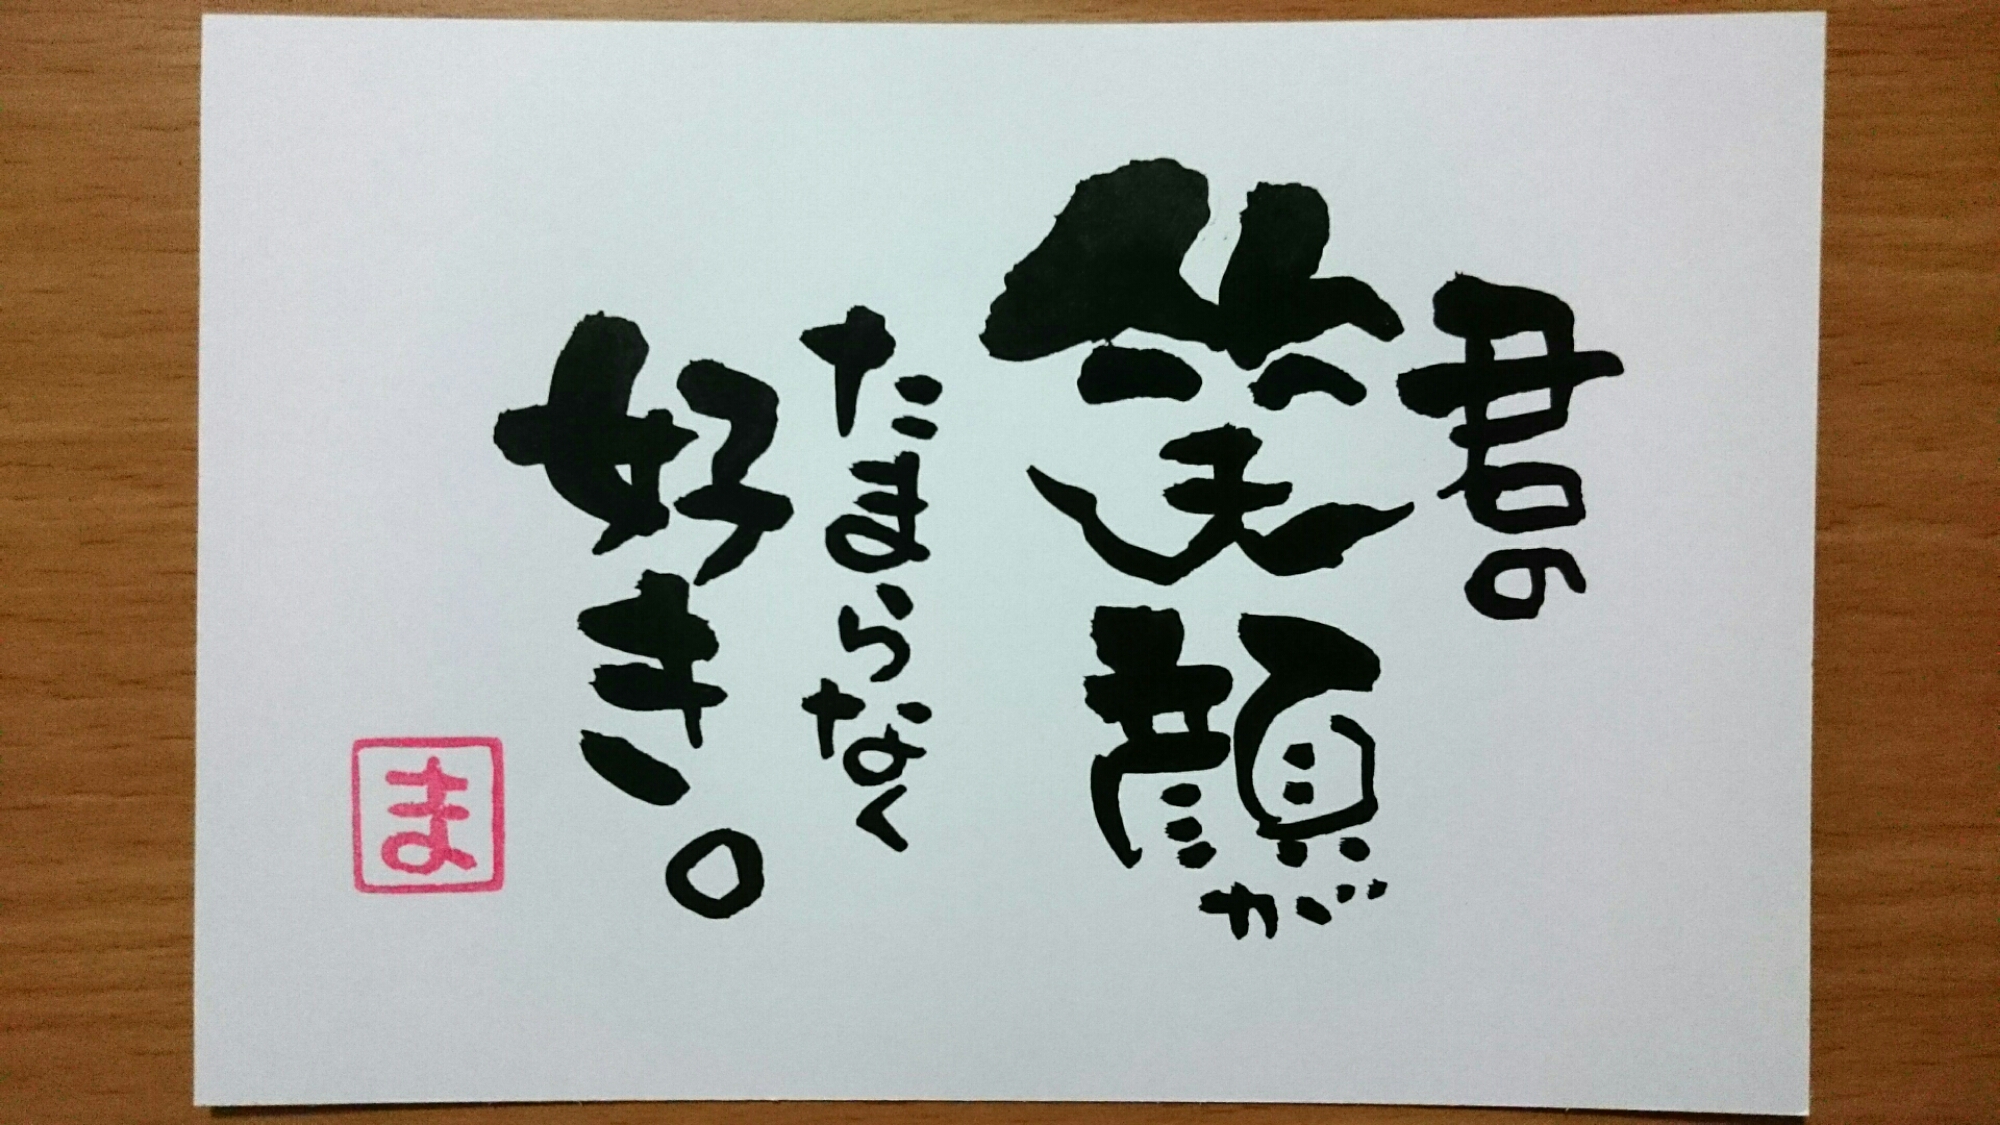 君の
笑顔が
たまらなく
好き。
ま